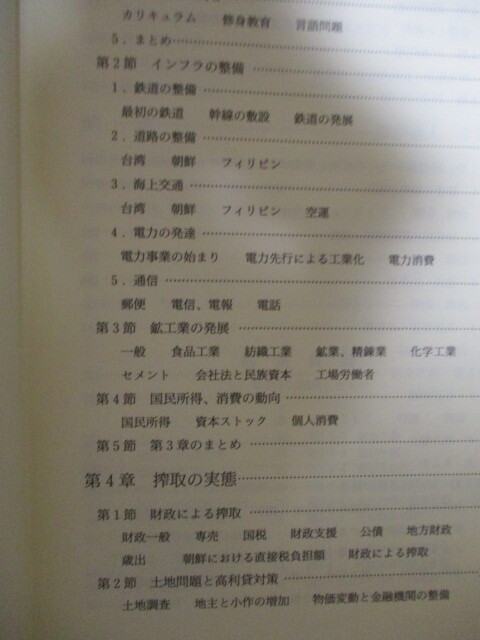 カリキュラム　修身教育　言語問題
5．まとめ……………
第2節　インフラの整備……………
1．鉄道の整備……………
最初の鉄道　幹線の敷設　鉄道の発展
2．道路の整備……………
台湾　朝鮮　フィリピン
3．海上交通……………
台湾　朝鮮　フィリピン　空運
4．電力の発達……………
電力事業の始まり　電力先行による工業化　電力消費
5．通信……………
郵便　電信、電報　電話
第3節　鉱工業の発展……………
一般　食品工業　紡織工業　鉱業、精錬業　化学工業
セメント　会社法と民族資本　工場労働者
第4節　国民所得、消費の動向……………
国民所得　資本ストック　個人消費
第5節　第3章のまとめ……………
第4章　搾取の実態……………
第1節　財政による搾取……………
財政一般　専売　国税　財政支援　公債　地方財政
歳出　朝鮮における直接税負担額　財政による搾取
第2節　土地問題と高利貸対策……………
土地調査　地主と小作の増加　物価変動と金融機関の整備